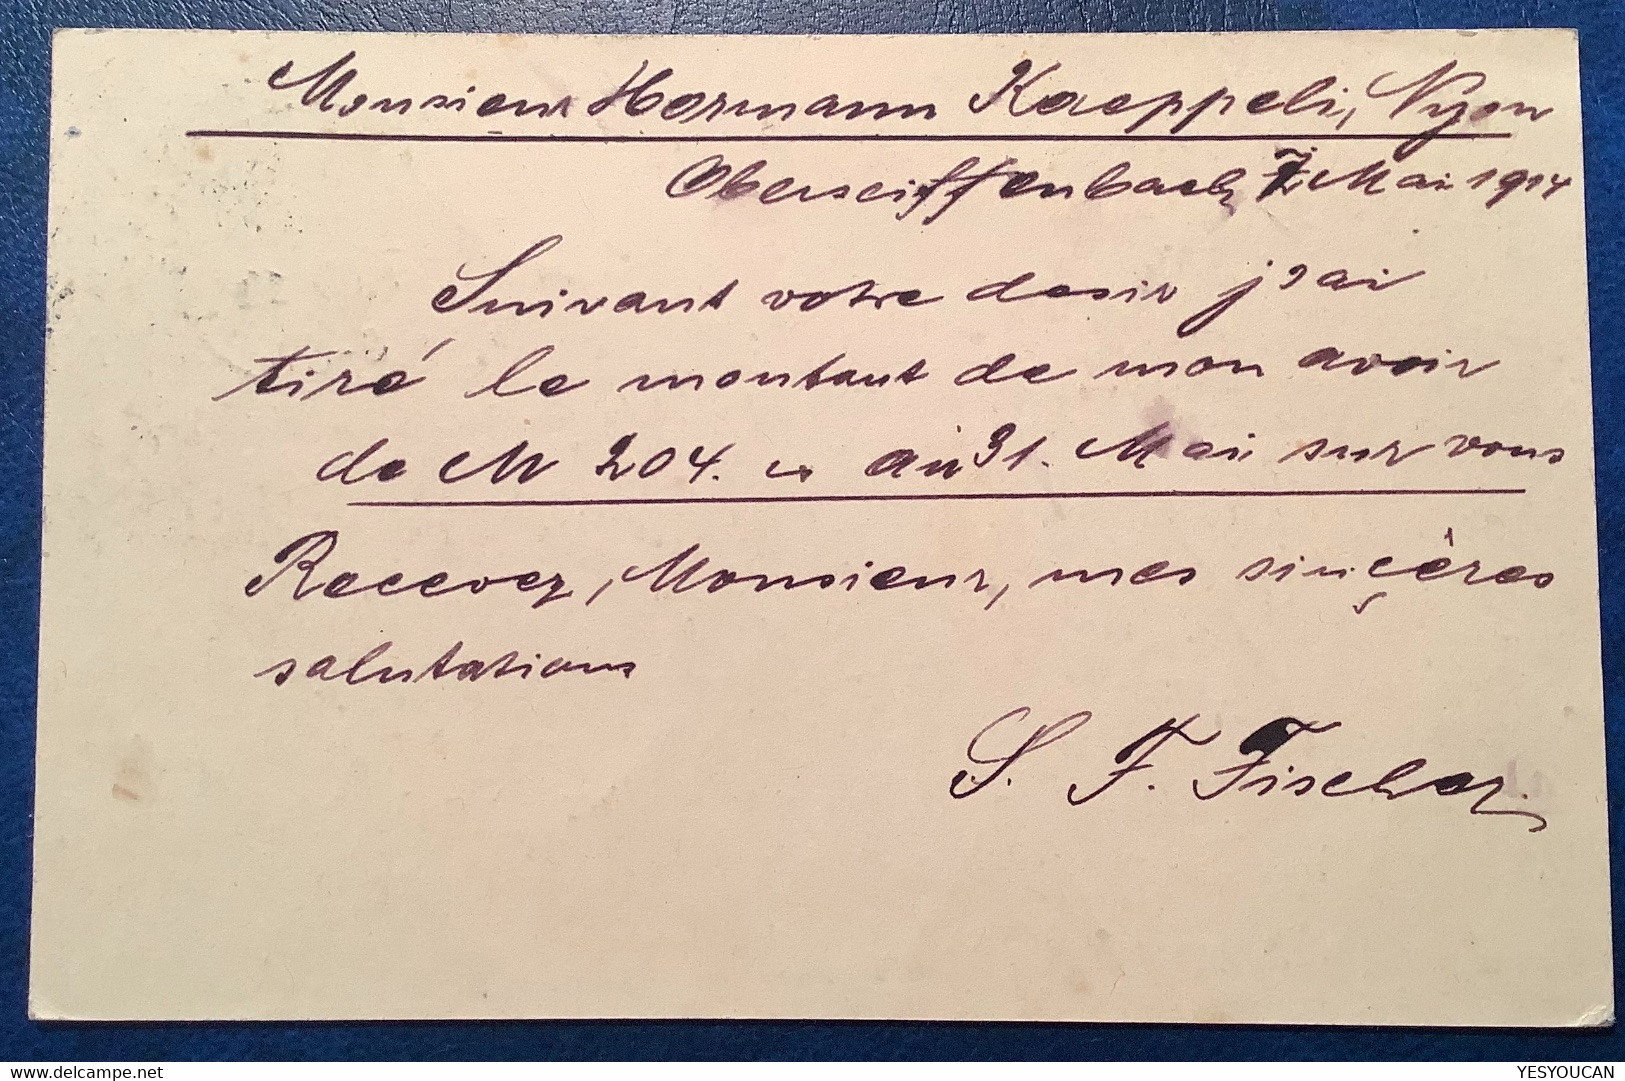 Monsieur Hermann Kaeppeli, Nyon
Oberseiffenbach 7. Mai 1914
Suivant votre desir j'ai
tiré le montant de mon avoir
de M 204. au 31. Mai sur vous
Recevez, Monsieur, mes sinçères
salutations
S. F. Fischer.
YESYOUCAN